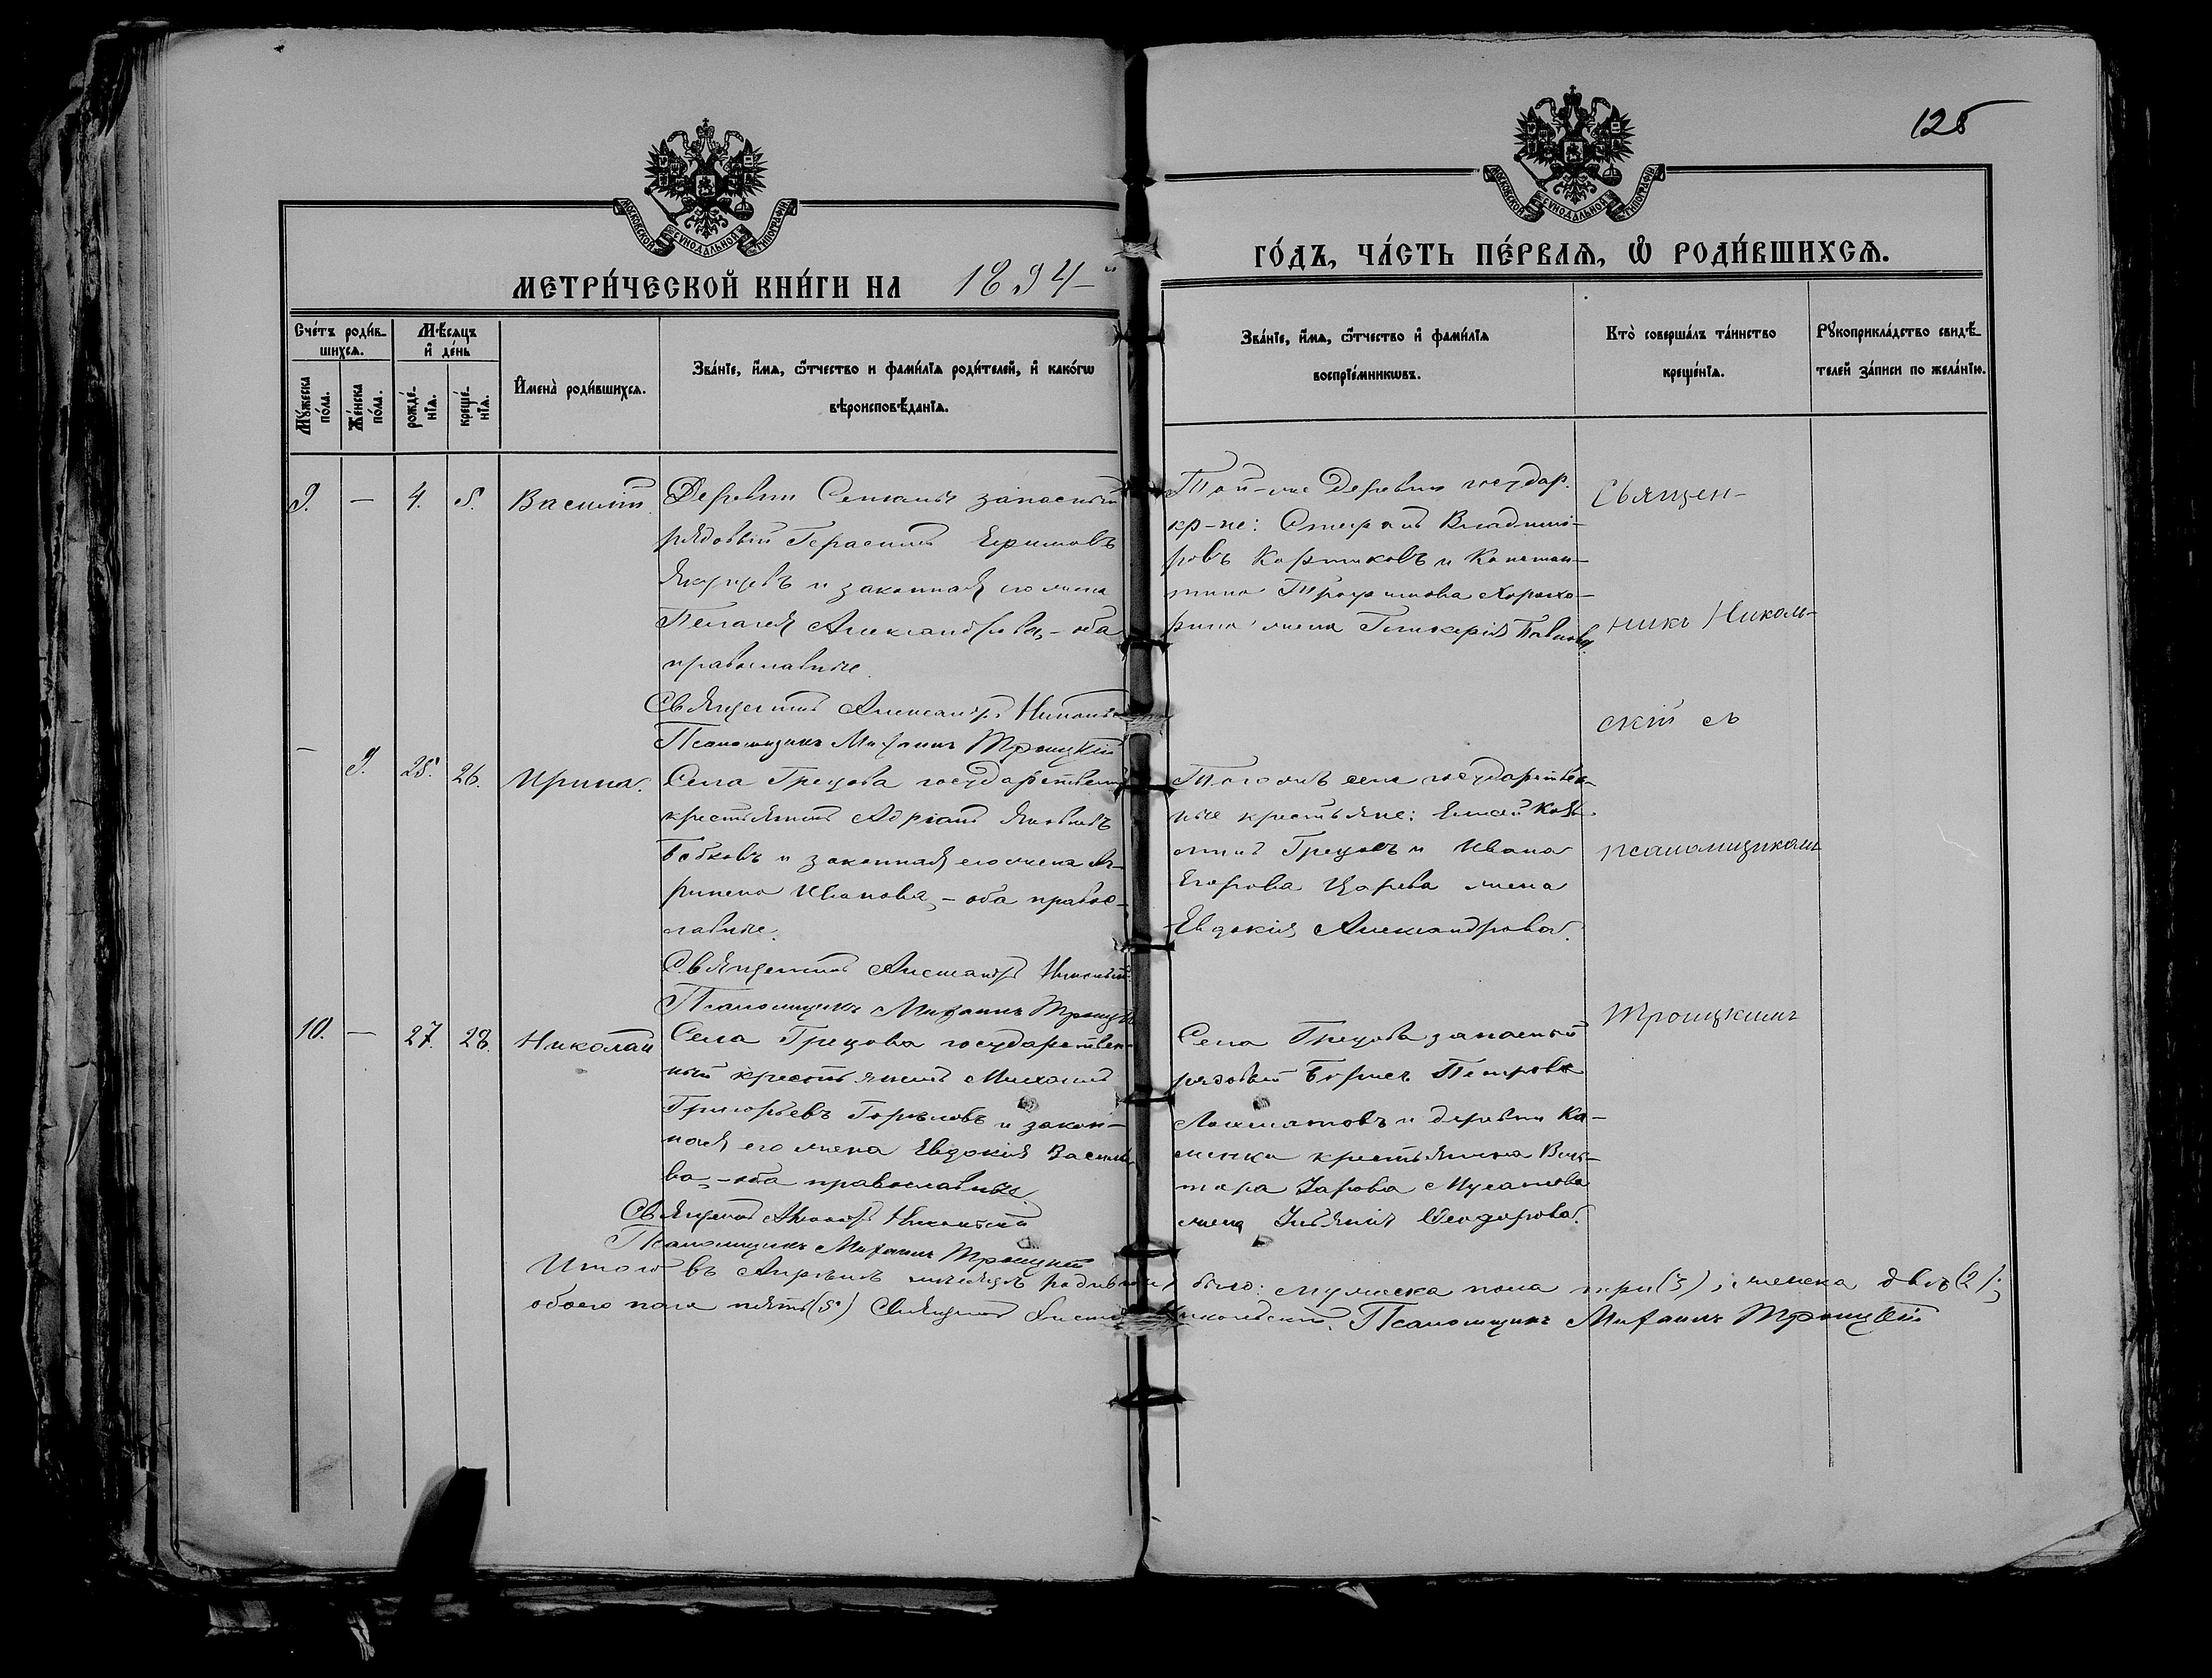 125
МОСКОВСКОЙ СѴНОДАЛЬНОЙ ТИПОГРАФІИ
МОСКОВСКОЙ СѴНОДАЛЬНОЙ ТИПОГРАФІИ
МЕТРИ́ЧЕСКОЙ КНИ́ГИ НА 1894-й
ГО́ДЪ, ЧА́СТЬ ПЕ́РВАѦ, Ѡ РОДИ́ВШИХСѦ.
Сче́тъ роди́в-
шихсѧ.
Мꙋ́жеска по́ла.
Же́нска по́ла.
Мѣ́сѧцъ
и де́нь
рожде́-нїѧ.
креще́-нїѧ.
Имена̀ роди́вшихсѧ.
Зва́нїе, и́мѧ, ѻ́тчество и фами́лїѧ роди́телей, и како́гѡ
вѣроисповѣ́данїѧ.
Зва́нїе, и́мѧ, ѻ́тчество и фами́лїѧ
воспрїе́мникѡвъ.
Кто̀ соверша́лъ та́инство
креще́нїѧ.
Рꙋкоприкла́дство свидѣ́-
телей за́писи по жела́нїю.
9. — 4. 5. Василій
Деревни запасный
рядовый Герасимъ Ефимовъ
и законная его жена
Пелагея Александрова, - оба
православные.
Священникъ Александръ Никольскій
Псаломщикъ Михаилъ Троицкій
Той-же деревни государ.
кр-не: Стефанъ Владимі-
ровъ и Констан-
тина Трофимова
жена Гликерія Павлова.
— 9. 25. 26. Ирина.
Села Грецова государственный
крестьянинъ Адріанъ Яковлевъ
Бобковъ и законная его жена Аг-
рипена Иванова, - оба правос-
лавные.
Священникъ Александръ Никольскій
Псаломщикъ Михаилъ Троицкій
Того-жъ села государствен-
ные крестьяне: Козь-
минъ Грецовъ и Ивана
Егорова Царева жена
Евдокія Александрова.
10. — 27. 28. Николай
Села Грецова государствен-
ный крестьянинъ Михаилъ
Григорьевъ Горѣловъ и закон-
ная его жена Евдокія Василье
ва, - оба православные.
Священникъ Александръ Никольскій
Псаломщикъ Михаилъ Троицкій
Села Грецова запасный
рядовый Борисъ Петровъ
и деревни Ка-
менки крестьянина Вик-
тора
жена Ульянія Ѳеодорова.
Священ-
никъ Николь-
скій съ
псаломщикомъ
Троицкимъ
Итого въ Апрѣлѣ мѣсяцѣ родившихся было: мужеска пола три (3), женска двѣ (2);
обоего пола пять (5.) Священникъ Никольскій. Псаломщикъ Михаилъ Троицкій